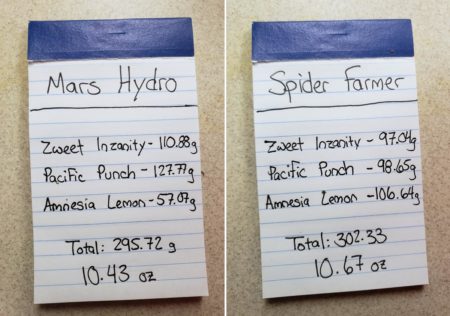 Mars Hydro
Zweet Inzanity - 110.88g
Pacific Punch - 127.77g
Amnesia Lemon - 57.07g
Total: 295.72 g
10.43 oz
Spider Farmer
Zweet Inzanity - 97.04g
Pacific Punch - 98.65g
Amnesia Lemon - 106.64g
Total: 302.33
10.67 oz